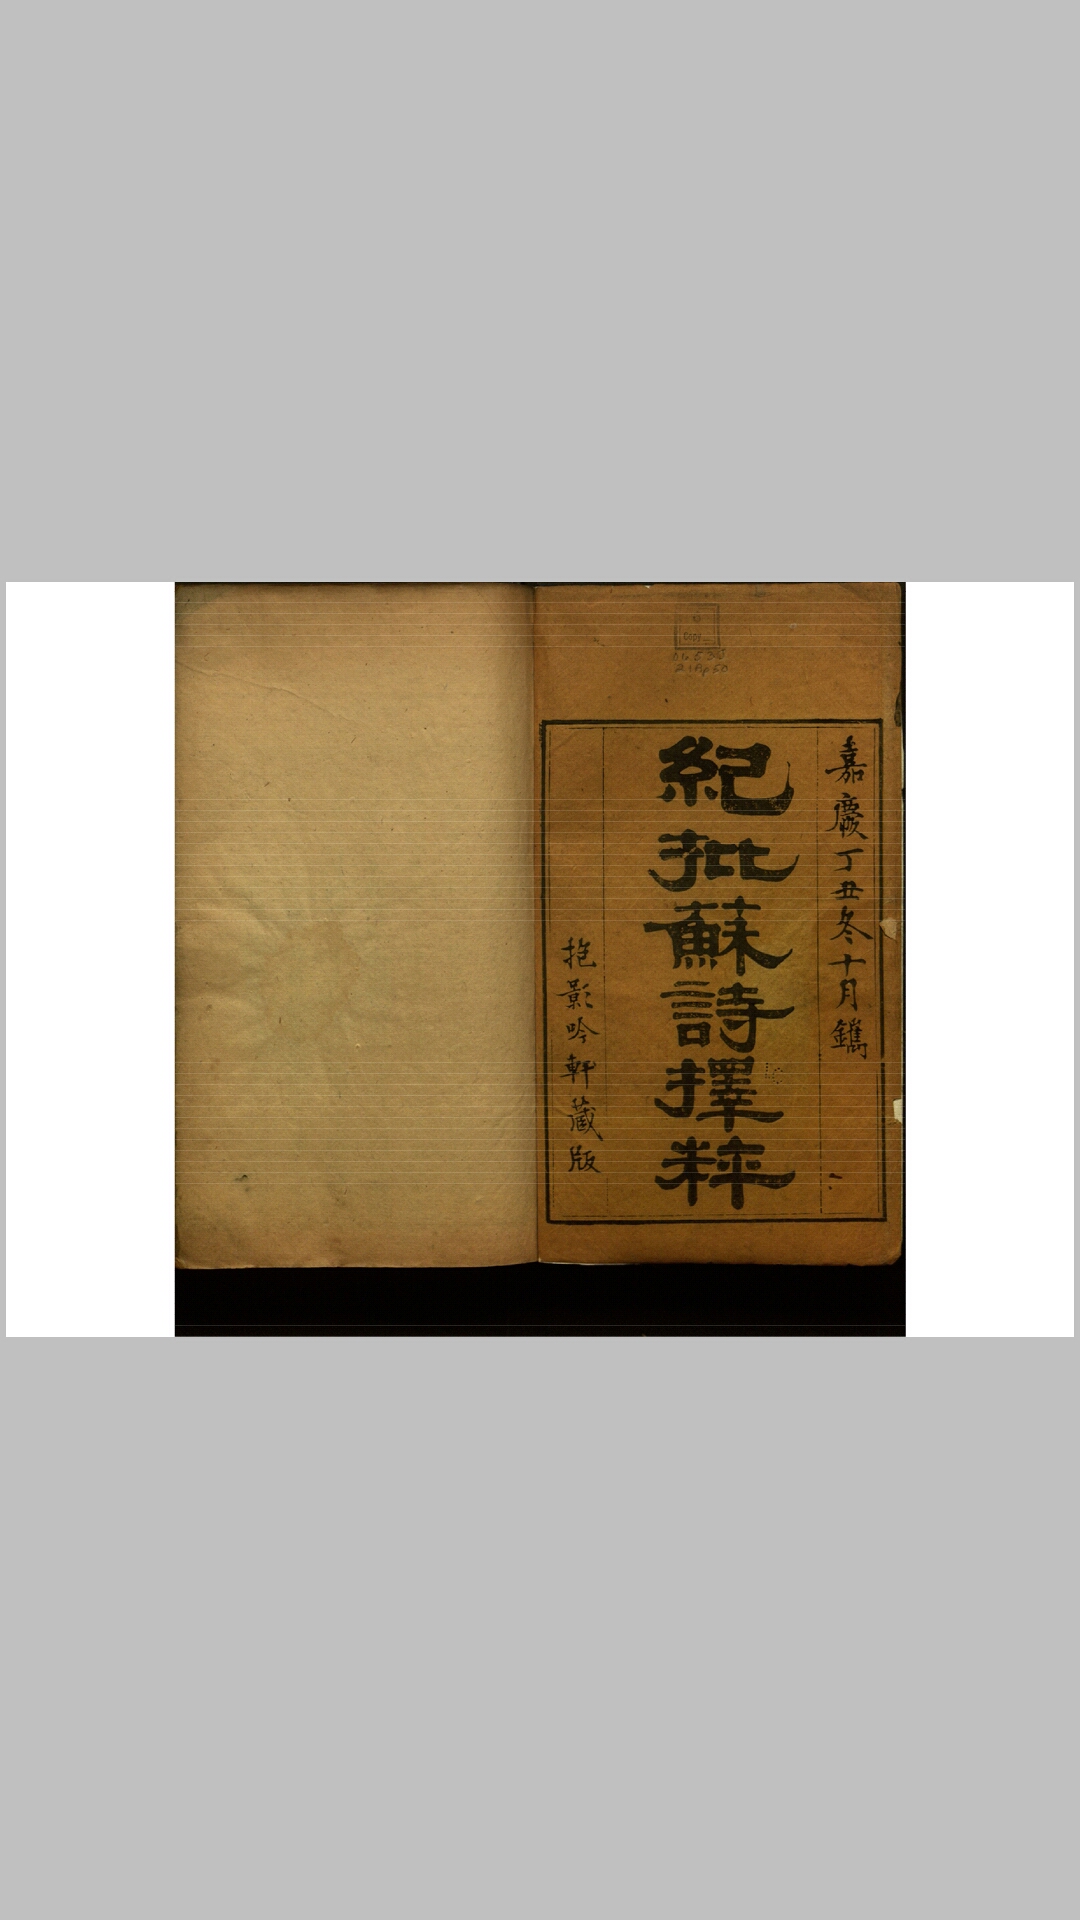 嘉慶丁丑冬十月鐫
紀批蘇詩擇粹
抱影吟軒藏版
Copy